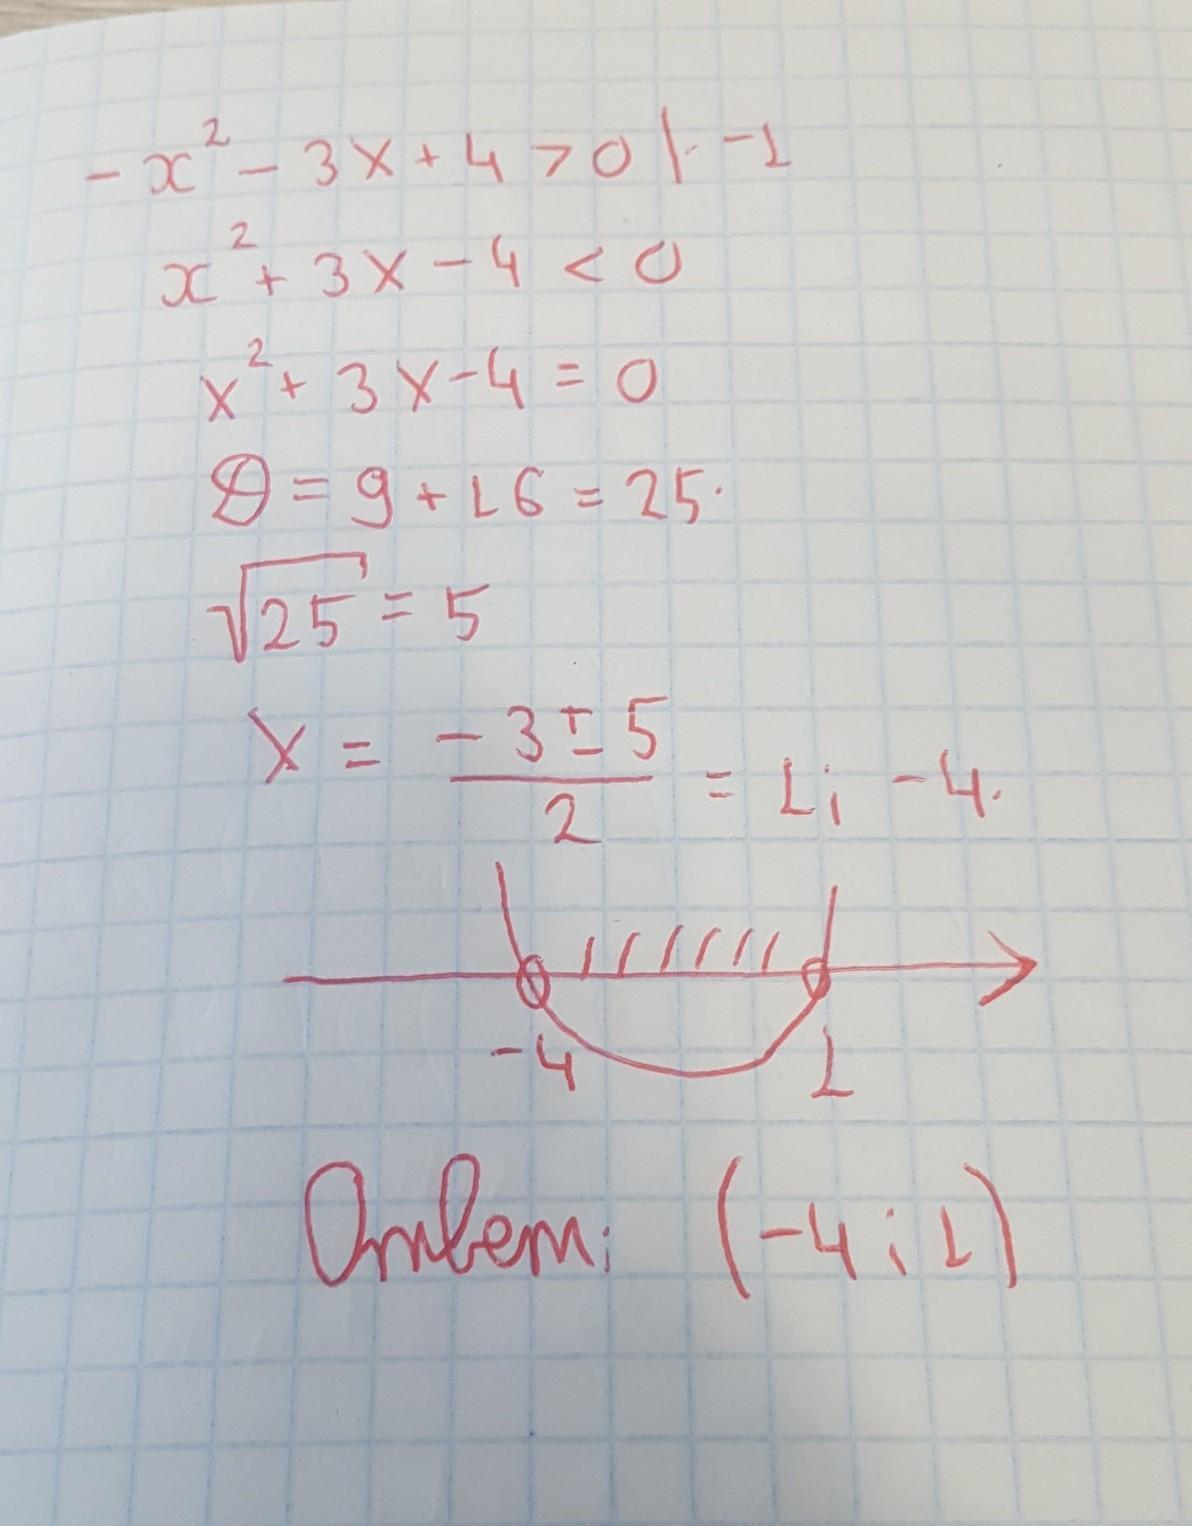 -x² - 3x + 4 > 0 |· -1
x² + 3x - 4 < 0
x² + 3x - 4 = 0
D = 9 + 16 = 25.
√25 = 5
x = (-3 ± 5)/2 = 1; -4.
-4 1
Ответ: (-4; 1)